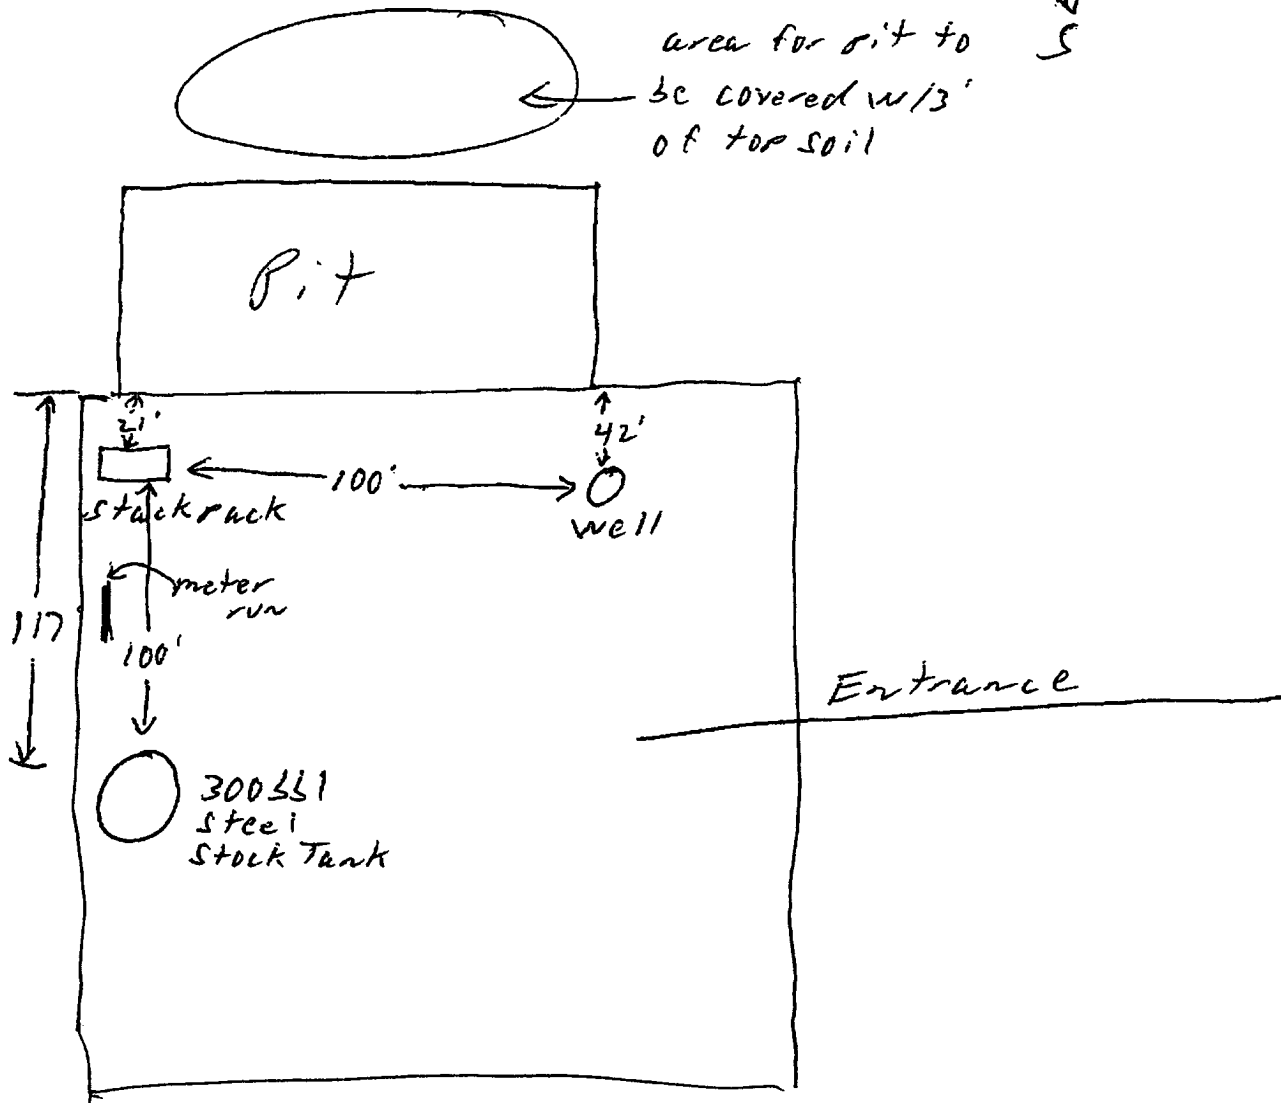 S
area for pit to
be covered w/3'
of top soil
Pit
21'
42'
100'
stackpack
well
meter
run
117
100'
Entrance
300 bbl
steel
stock Tank